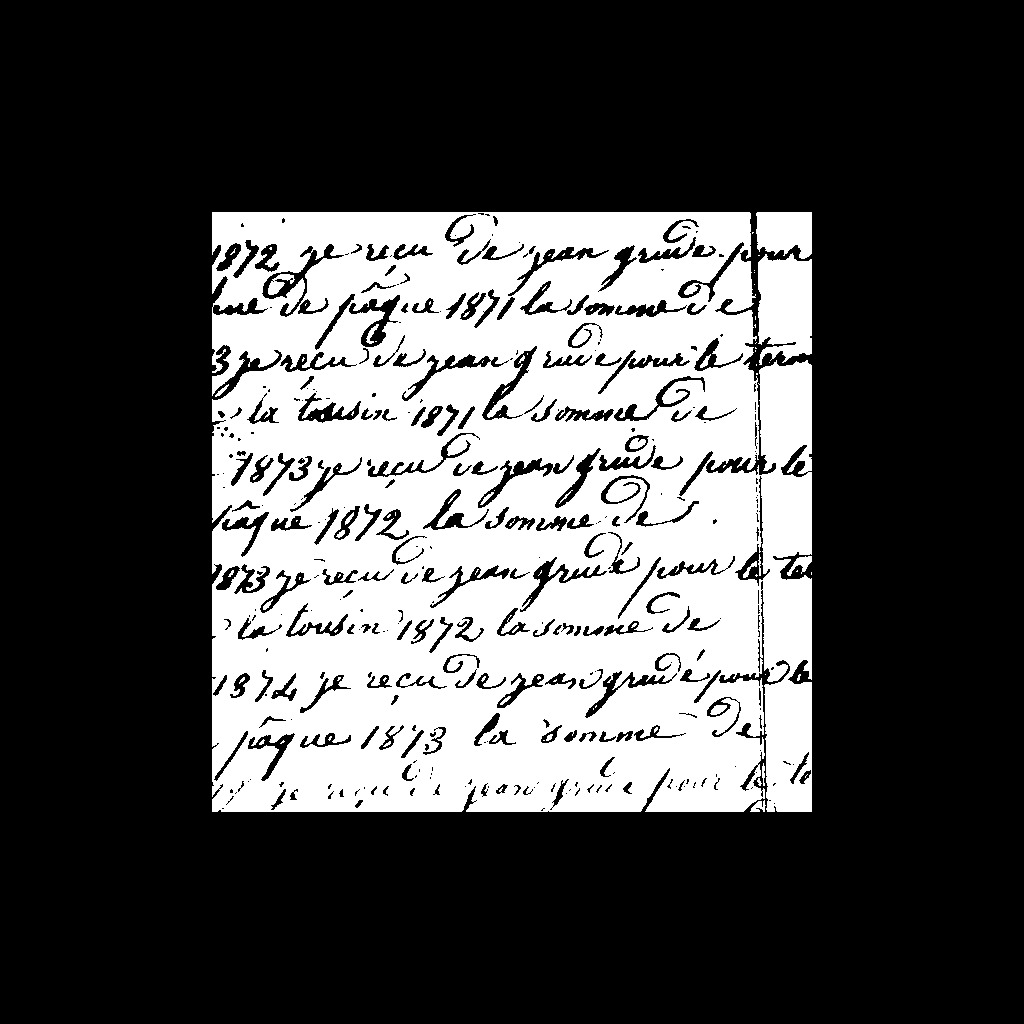 1872 je reçu de jean grude pour
de pâque 1871 la somme de
3 je reçu de jean grude pour le term
la tousin 1871 la somme de
1873 je reçu de jean grude pour le
pâque 1872 la somme de
1873 je reçu de jean grudé pour le ter
la tousin 1872 la somme de
1874 je reçu de jean grudé pour le
pâque 1873 la somme de
je reçu de jean grude pour le te